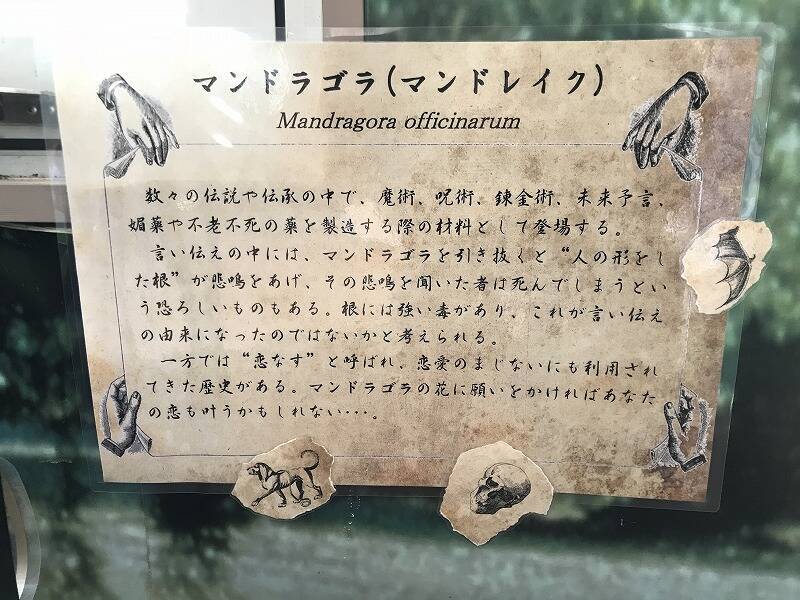 マンドラゴラ(マンドレイク)
Mandragora officinarum
数々の伝説や伝承の中で、魔術、呪術、錬金術、未来予言、
媚薬や不老不死の薬を製造する際の材料として登場する。
言い伝えの中には、マンドラゴラを引き抜くと“人の形をし
た根”が悲鳴をあげ、その悲鳴を聞いた者は死んでしまうとい
う恐ろしいものもある。根には強い毒があり、これが言い伝え
の由来になったのではないかと考えられる。
一方では“恋なす”と呼ばれ、恋愛のまじないにも利用され
てきた歴史がある。マンドラゴラの花に願いをかければあなた
の恋も叶うかもしれない・・・。